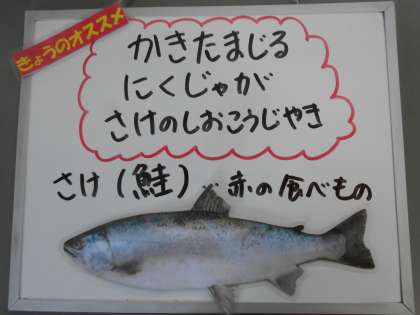 きょうのオススメ
かきたまじる
にくじゃが
さけのしおこうじやき
さけ(鮭) 赤の食べもの